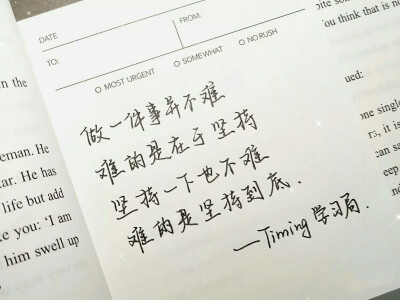 DATE:
FROM:
TO:
MOST URGENT
SOMEWHAT
NO RUSH
做一件事并不难
难的是在于坚持
坚持一下也不难
难的是坚持到底.
—Timing学习局.
n the
eman. He
tar. He has
life but add
te you: 'I am
him swell up
oite som
You think that is no
ued:
one singl
rs, it is
can sa
eep